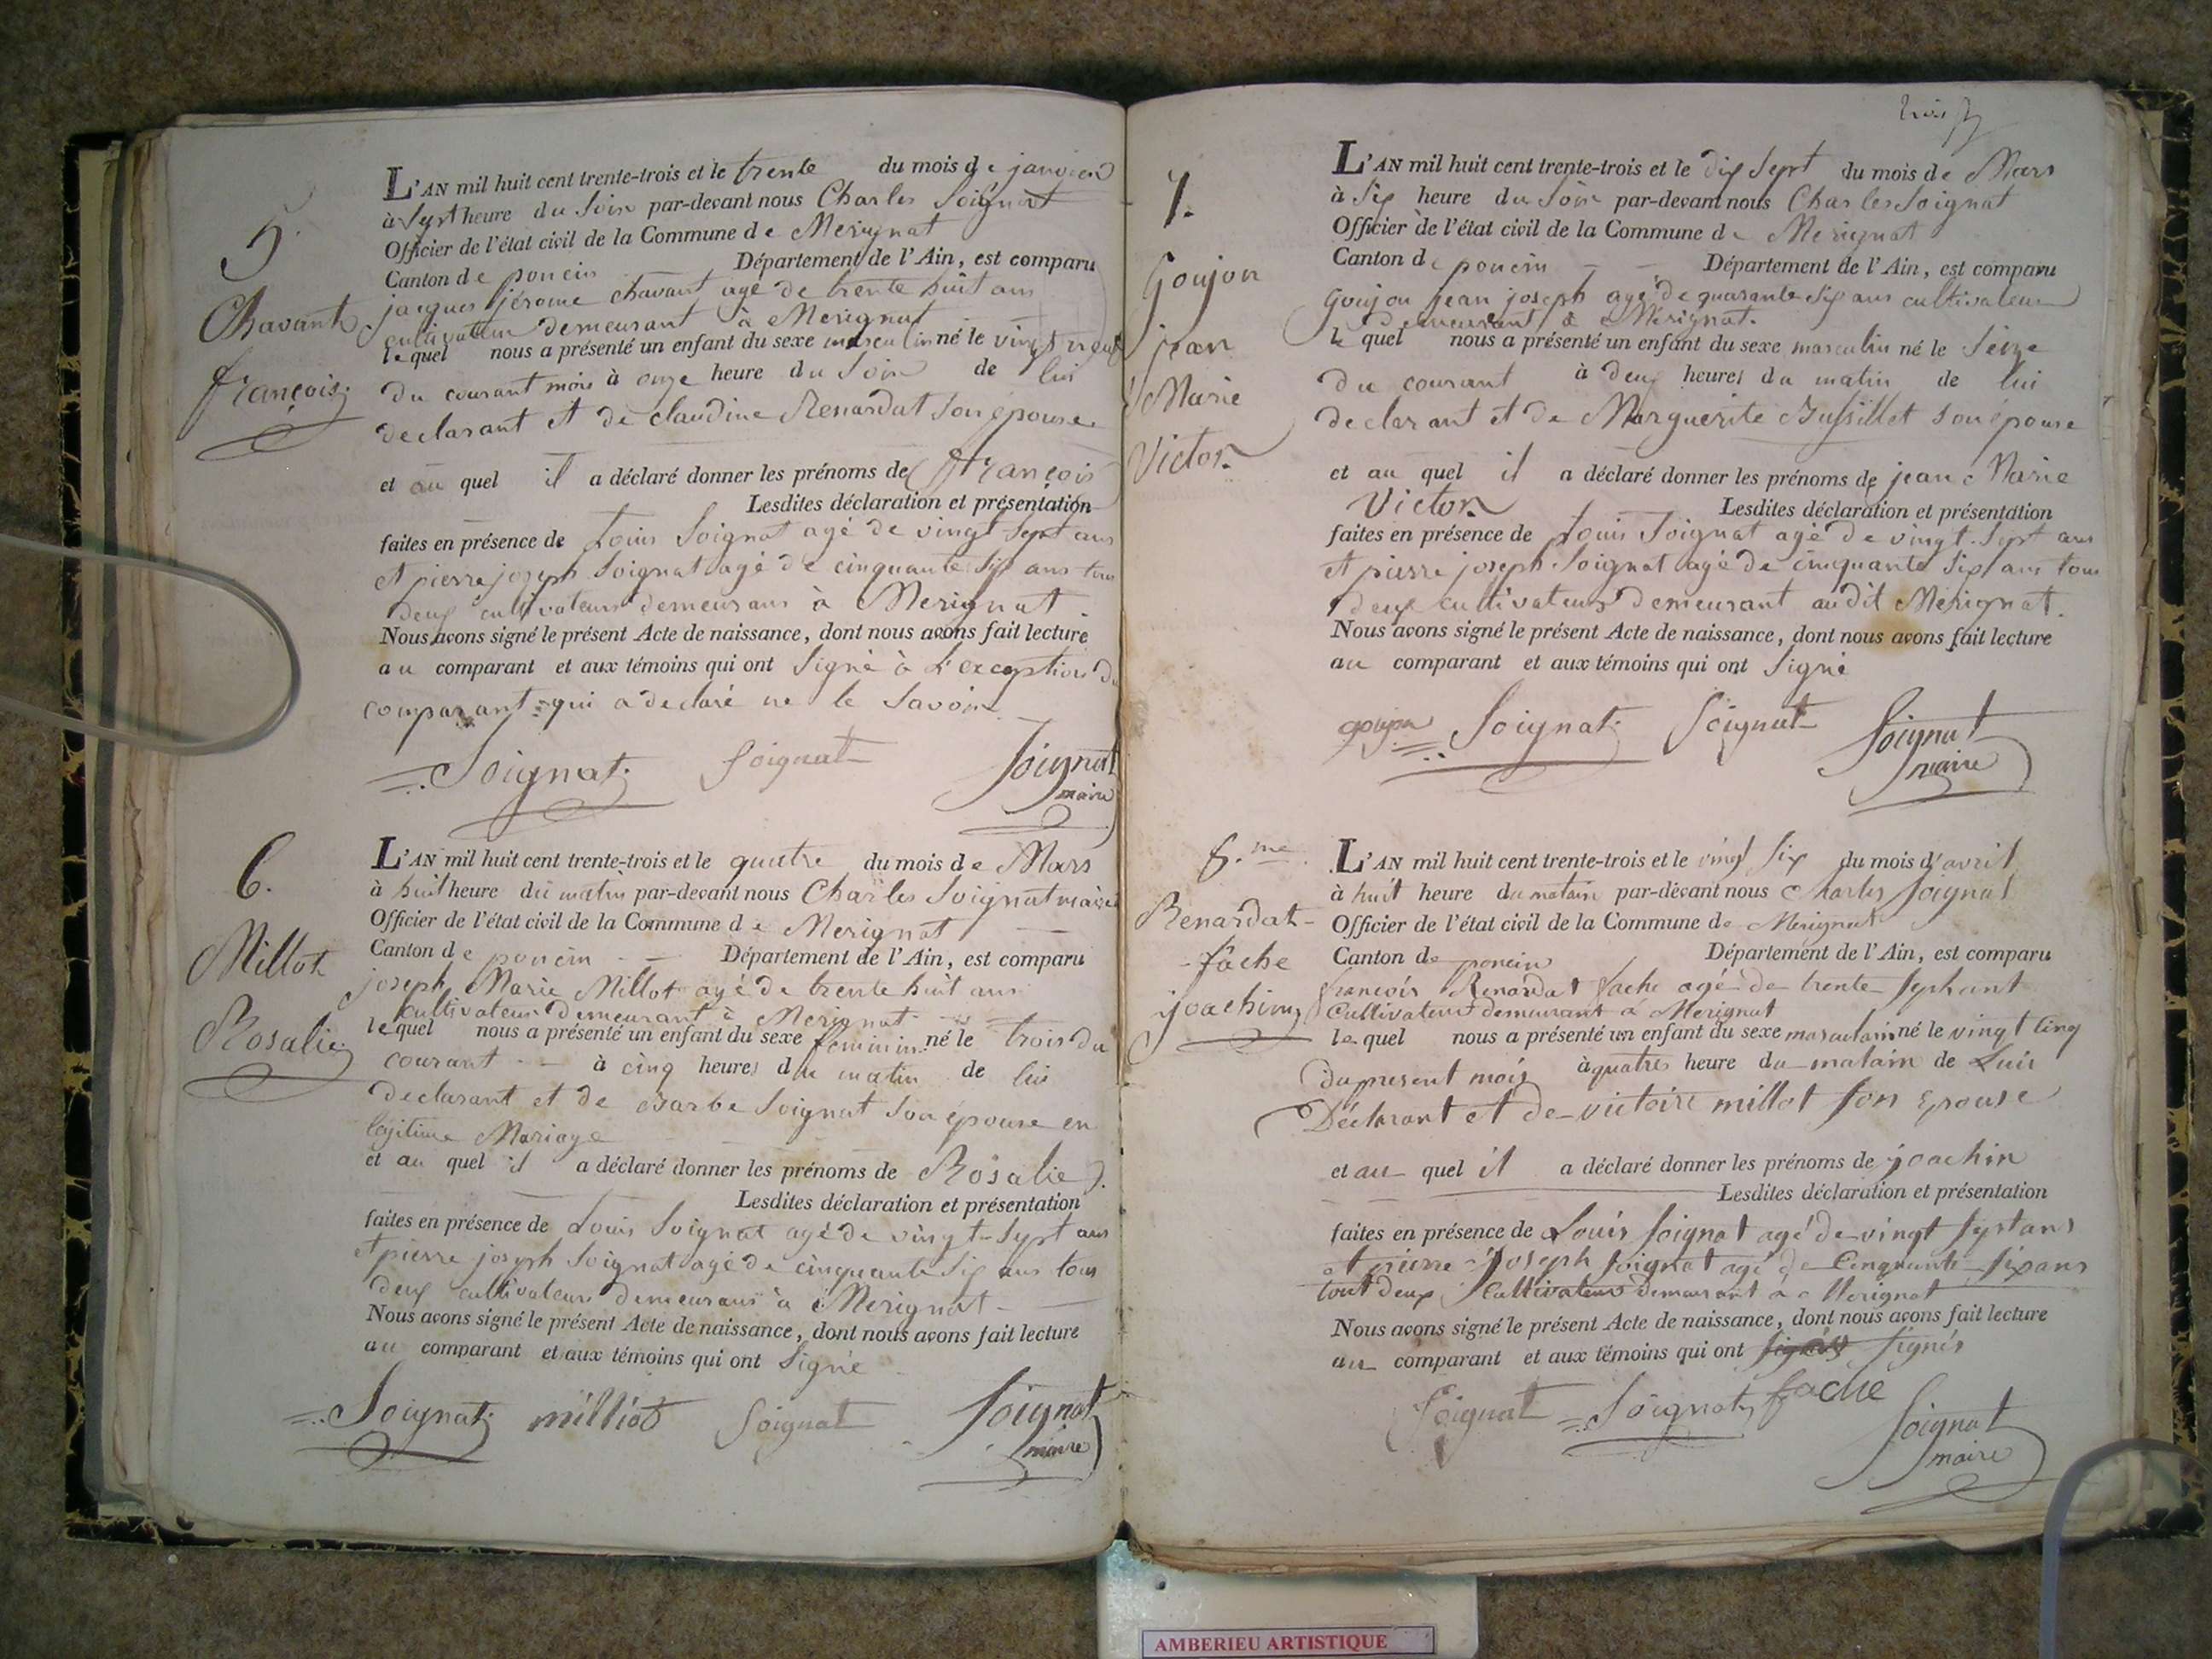 5.
Chavant
François
L'AN mil huit cent trente-trois et le trente du mois de janvier
à Sept heure du Soir par-devant nous Charles Soignat
Officier de l'état civil de la Commune de Merignat
Canton de poncin Département de l'Ain, est comparu
jacques jérome chavant agé de trente huit ans
cultivateur demeurant à Merignat
le quel nous a présenté un enfant du sexe masculin né le vingt neuf
du courant mois à onze heure du Soir de lui
declarant et de claudine Renardat son épouse
et au quel il a déclaré donner les prénoms de François
Lesdites déclaration et présentation
faites en présence de Louis Soignat agé de vingt Sept ans
et pierre joseph Soignat agé de cinquante Six ans tous
deux cultivateurs demeurans à Merignat
Nous avons signé le présent Acte de naissance, dont nous avons fait lecture
au comparant et aux témoins qui ont Signé à L'exception du
comparant qui a declaré ne le Savoir
Soignat Soignat Soignat
maire
6.
Millot
Rosalie
L'AN mil huit cent trente-trois et le quatre du mois de Mars
à huit heure du matin par-devant nous Charles Soignat maire
Officier de l'état civil de la Commune de Merignat
Canton de poncin Département de l'Ain, est comparu
joseph Marie Millot agé de trente huit ans
cultivateur demeurant à Merignat
le quel nous a présenté un enfant du sexe féminin né le trois du
courant à cinq heures du matin de lui
declarant et de Barbe Soignat Son épouse en
légitime Mariage
et au quel il a déclaré donner les prénoms de Rosalie.
Lesdites déclaration et présentation
faites en présence de Louis Soignat agé de vingt-Sept ans
et pierre joseph Soignat agé de cinquante Six ans tous
deux cultivateurs demeurans à Merignat
Nous avons signé le présent Acte de naissance, dont nous avons fait lecture
au comparant et aux témoins qui ont Signé
Soignat milliot Soignat Soignat
maire
trois
7.
Goujon
jean
Marie
Victor
L'AN mil huit cent trente-trois et le dix Sept du mois de Mars
à Six heure du Soir par-devant nous Charles Soignat
Officier de l'état civil de la Commune de Merignat
Canton de poncin Département de l'Ain, est comparu
Goujon jean joseph agé de quarante Six ans cultivateur
demeurant à Mérignat.
le quel nous a présenté un enfant du sexe masculin né le Seize
du courant à deux heures du matin de lui
declarant et de Marguerite Jussillet son épouse
et au quel il a déclaré donner les prénoms de jean Marie
Victor Lesdites déclaration et présentation
faites en présence de Louis Soignat agé de vingt Sept ans
et pierre joseph Soignat agé de cinquante Six ans tous
deux cultivateurs demeurant audit Mérignat.
Nous avons signé le présent Acte de naissance, dont nous avons fait lecture
au comparant et aux témoins qui ont Signé
goujon Soignat Soignat Soignat
maire
8.me
Renardat-
fache
joachim
L'AN mil huit cent trente-trois et le vingt Six du mois d'avril
à huit heure du matain par-devant nous Charles Soignat
Officier de l'état civil de la Commune de Merignat
Canton de poncin Département de l'Ain, est comparu
francois Renardat fache agé de trente sephant
Cultivateur demeurant à Merignat
le quel nous a présenté un enfant du sexe masculain né le vingt Cinq
du present mois à quatres heure du matain de Luis
Déclarant et de victoire millot son Epouse
et au quel il a déclaré donner les prénoms de joachin
Lesdites déclaration et présentation
faites en présence de Louis Soignat agé de vingt sept ans
et pierre joseph Soignat agé de Cenquante Sixans
tout deux Cultivateurs demeurant à Merignat
Nous avons signé le présent Acte de naissance, dont nous avons fait lecture
au comparant et aux témoins qui ont signés
Soignat Soignat fache Soignat
maire
AMBERIEU ARTISTIQUE